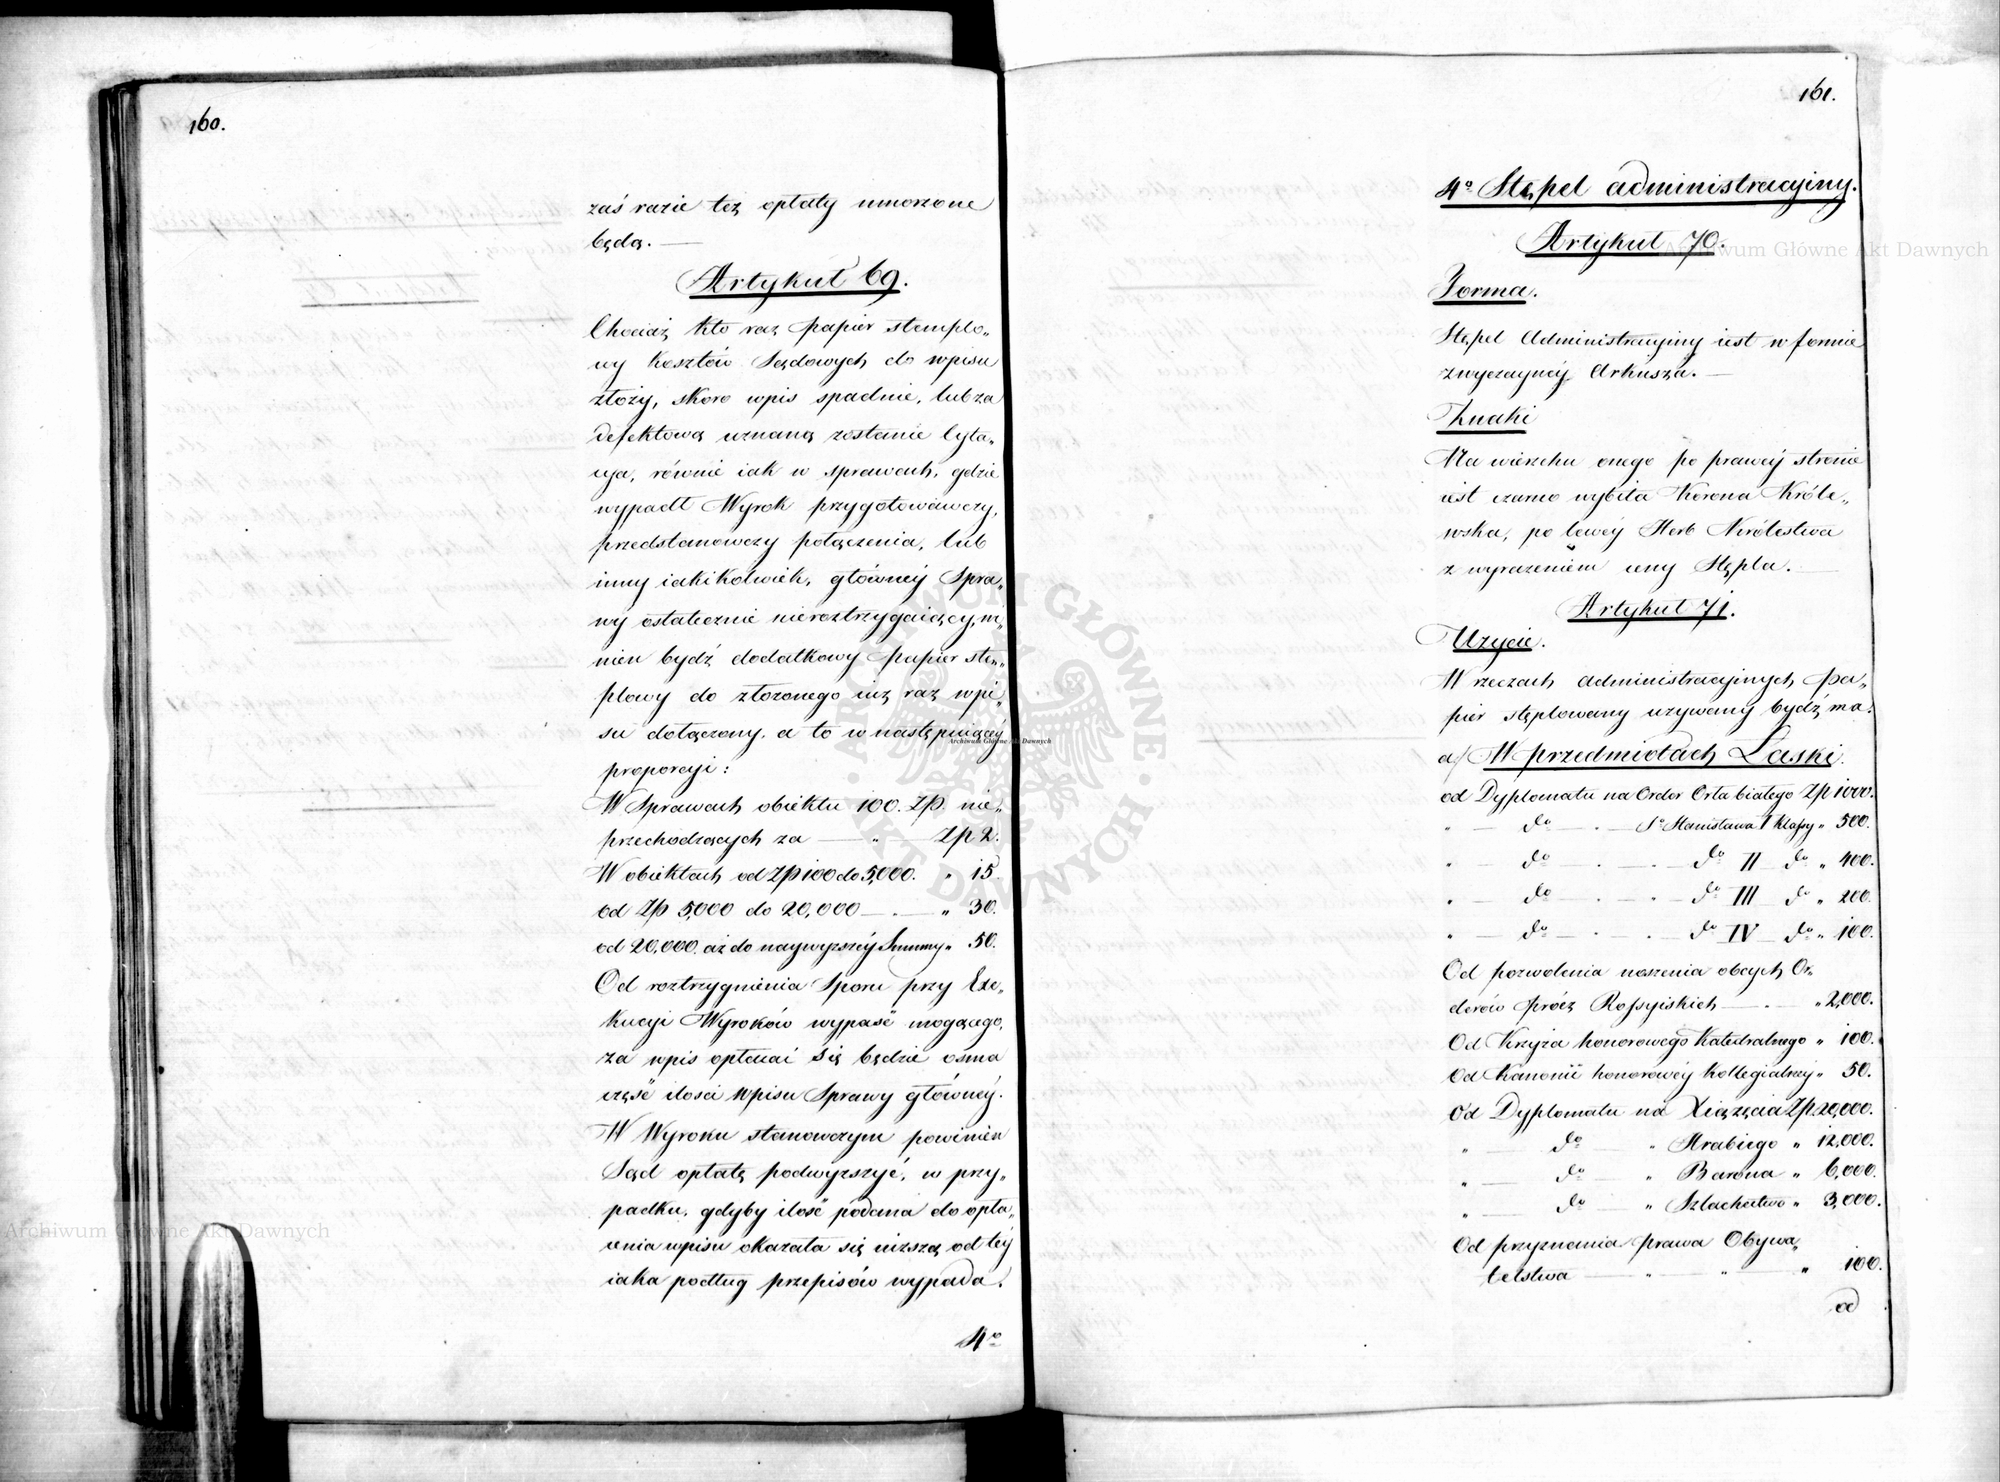 160.
zaś razie też opłaty umorzone
będą. —
Artykuł 69.
Chociaż kto raz papier stemplo„
wy kosztów Sądowych do wpisu
złoży, skoro wpis spadnie, lub za
defektową uznaną zostanie Cyta„
cya, równie iak w sprawach, gdzie
wypadł Wyrok przygotowawczy,
przedstanowczy połączenia, lub
inny iakikolwiek, główney Spra„
wy ostatecznie nieroztrzygaiący, wi„
nien bydź dodatkowy papier stem„
plowy do złożonego iuż raz wpi„
su dołączony, a to w następuiącey
proporcyi:
W Sprawach obiektu 100. Zp. nie„
przechodzących za — „ Zp 2.
W obiektach od Zp 100 do 5,000. „ 15.
od Zp 5,000 do 20,000 — . — „ 30.
od 20,000. aż do naywyższéy Summy „ 50.
Od roztrzygnienia Sporu przy Exe„
kucyi Wyroków wypaść mogącego,
za wpis opłacać się będzie ósma
część ilości wpisu Sprawy główney.
W Wyroku stanowczym powinien
Sąd opłatę podwyższyć, w przy„
padku, gdyby ilość podana do opła„
cenia wpisu okazała się niższą od téy
iaka podług przepisów wypada.
4º
161.
4º Stępel administracyiny.
Artykuł 70.
Forma.
Stępel Administracyiny iest w formie
zwyczayney Arkusza. —
Znaki
Na wierzchu onego po prawéy stronie
iest czarno wybita Korona Króle„
wska, po lewéy Herb Królestwa
z wyrażeniem ceny Stępla. —
Artykuł 71.
Użycie.
W rzeczach administracyjnych pa„
pier stęplowany używany bydź ma:
a/ W przedmiotach Łaski.
od Dyplomatu na Order Orła białego Zp 1000.
„ — dº — . — Sº Stanisława I klassy „ 500.
„ — dº — . — . — dº II — dº „ 400.
„ — dº — . — „ — dº III — dº „ 200.
„ — dº — . — . — dº IV — dº „ 100.
Od pozwolenia noszenia obcych Or„
derów prócz Rossyiskich — . — „ 2,000.
Od Krzyża honorowego Katedralnego „ 100.
Od Kanonii honorowéy Kollegialnéy „ 50.
Od Dyplomatu na Xiążęcia Zp. 20,000.
„ — dº — „ Hrabiego „ 12,000.
„ — dº — „ Barona „ 6,000.
„ — dº — „ Szlachectwo „ 3,000.
Od przyznania prawa Obywa„
telstwa — „ — „ — „ 100.
od
Archiwum Główne Akt Dawnych
Archiwum Główne Akt Dawnych
Archiwum Główne Akt Dawnych
ARCHIWUM GŁÓWNE AKT DAWNYCH